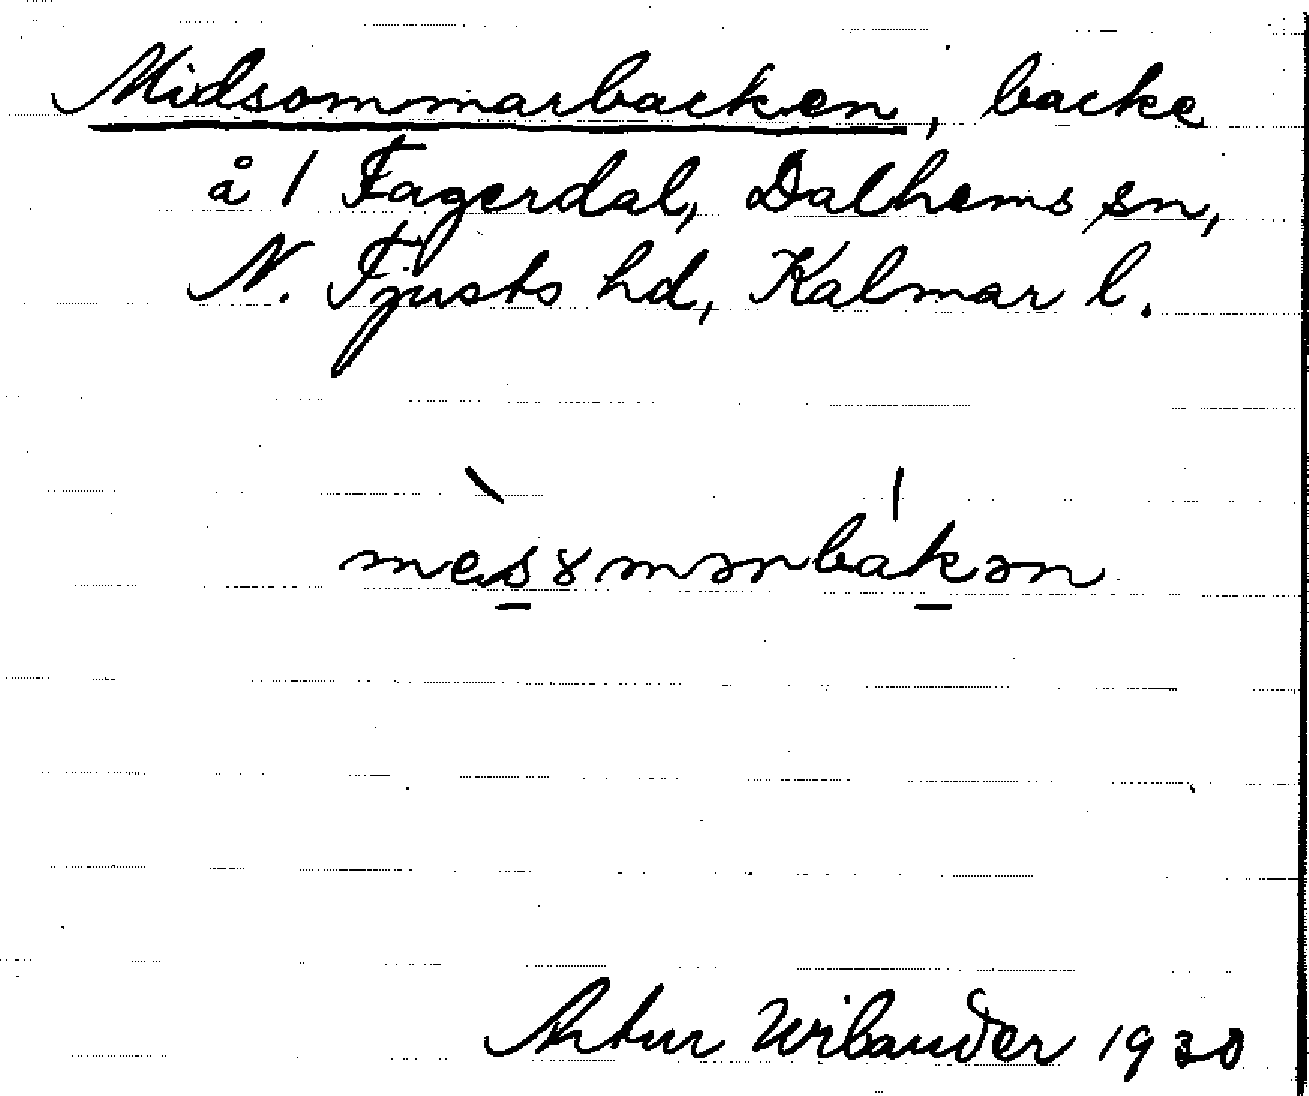 Midsommarbacken, backe
å 1 Fagerdal, Dalhems sn,
N. Tjusts hd, Kalmar l.
mès̠ȣmərbák̠ən
Artur Wilander 1930